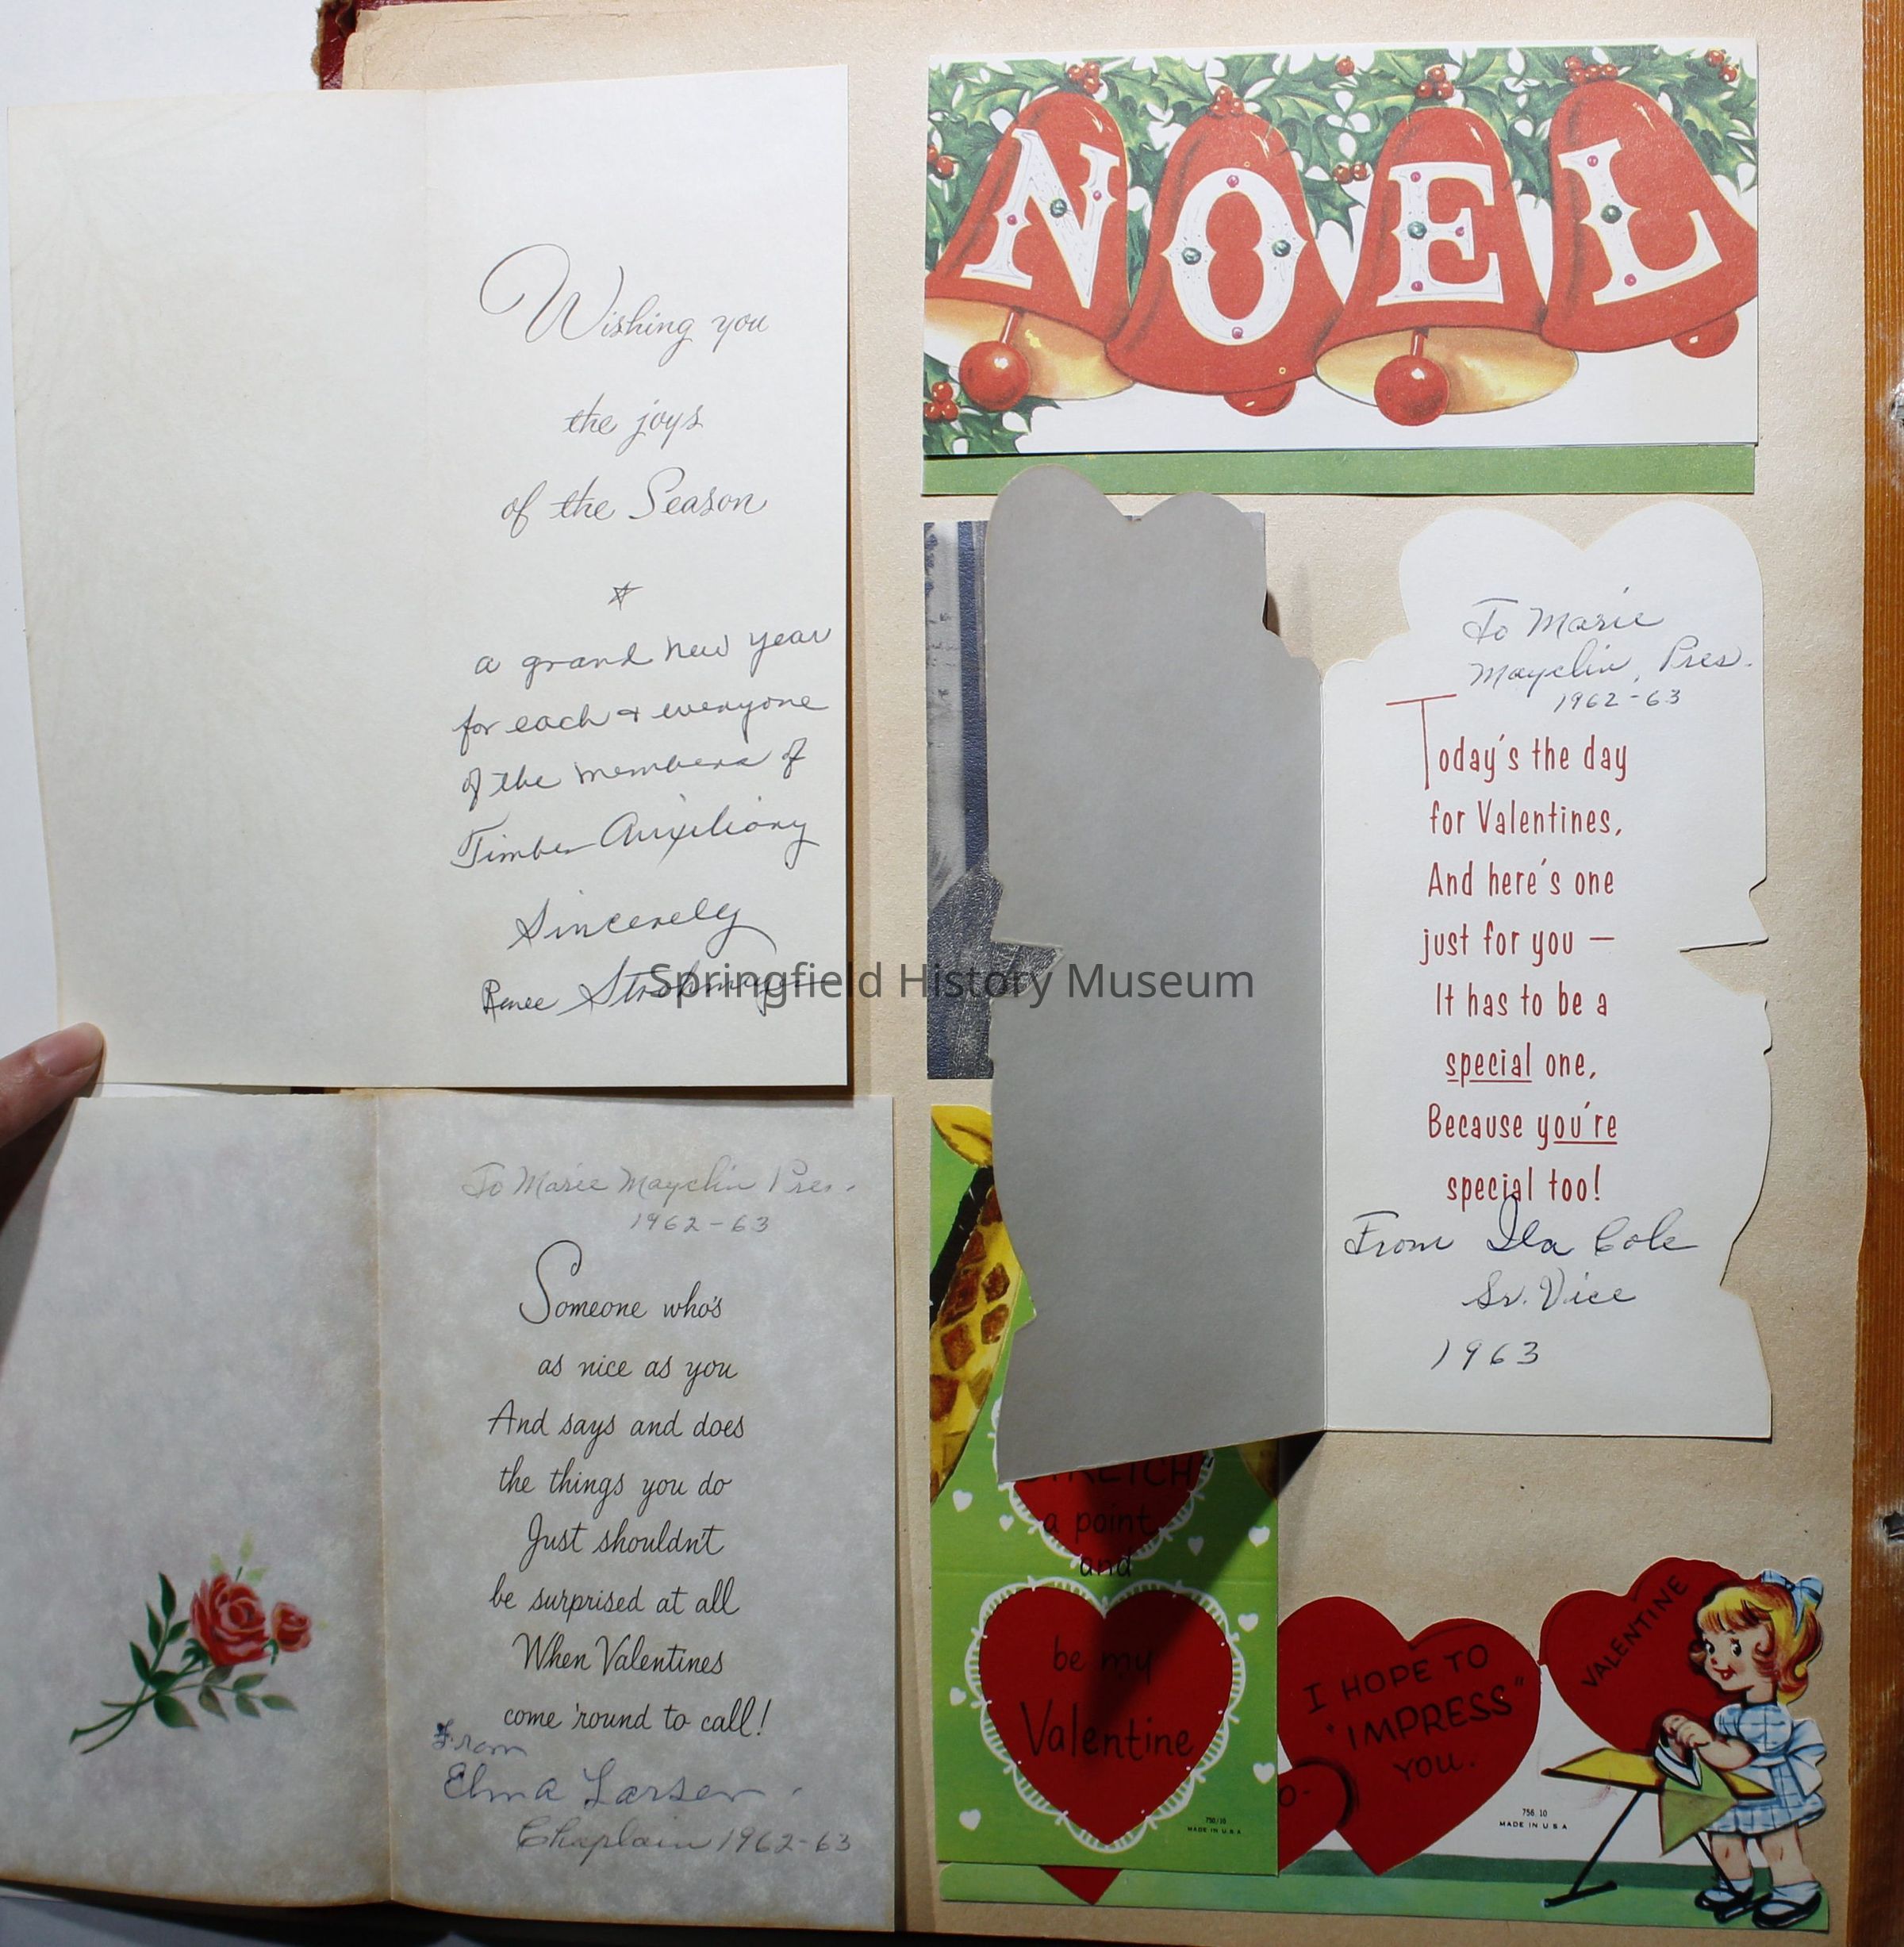 Wishing you
the joys
of the Season
a grand new year
for each & everyone
of the members of
Timber Auxiliary
Sincerely
Renee Strohmeyer
To Marie Mayclin Pres.
1962-63
Someone who's
as nice as you
And says and does
the things you do
Just shouldn't
be surprised at all
When Valentines
come 'round to call!
From
Elma Larsen.
Chaplain 1962-63
NOEL
To Marie
Mayclin, Pres.
1962-63
Today's the day
for Valentines,
And here's one
just for you —
It has to be a
special one,
Because you're
special too!
From Ila Cole
Sr. Vice
1963
Springfield History Museum
a point
and
be my
Valentine
750/10
MADE IN U S A
O-
I HOPE TO
"IMPRESS"
YOU.
VALENTINE
756 10
MADE IN U S A